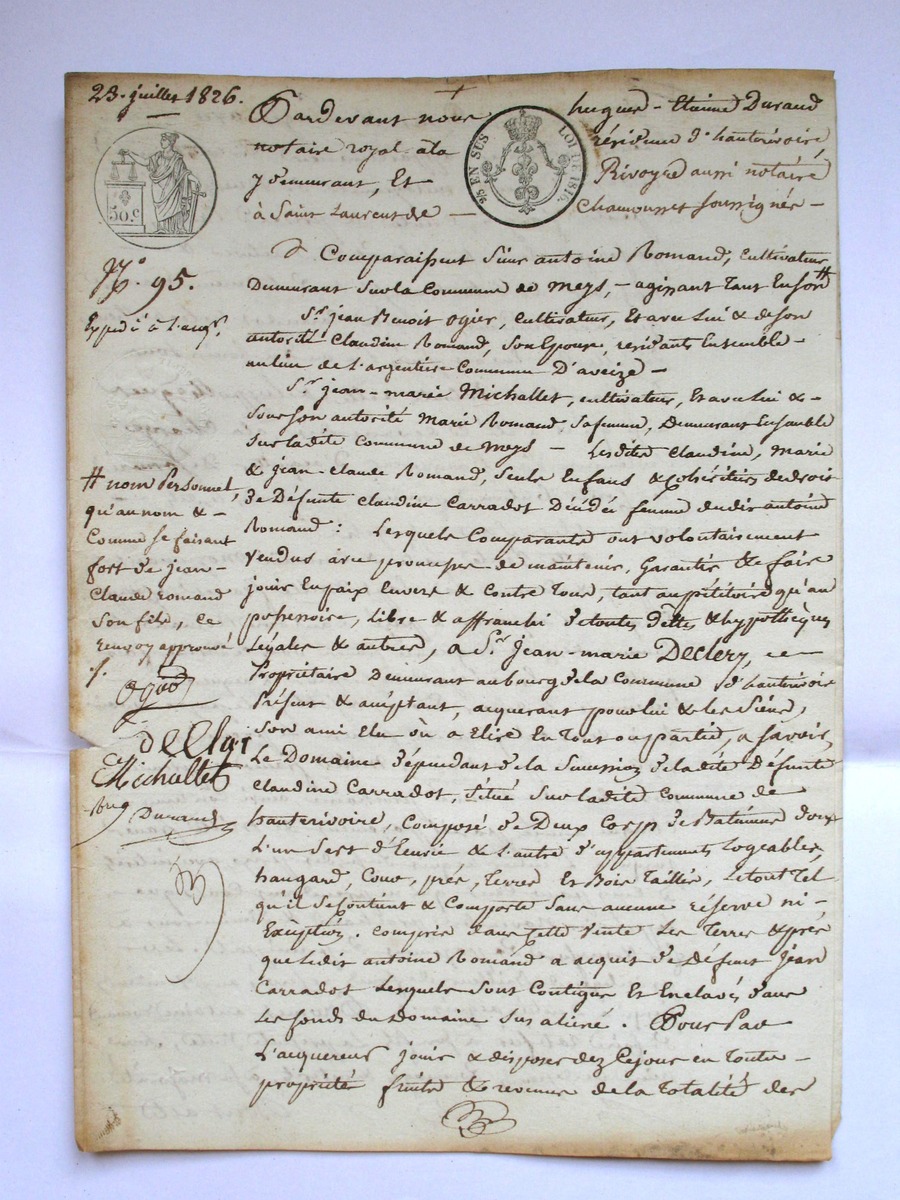 23. juillet 1826.
Pardevant nous hugues - Etienne Durand
notaire royal à la résidence d'hauterivoire
y demeurant, Et Rivoyre aussi notaire
à Saint Laurent de - Chamousset soussignés -
EN SUS LOI DE 1816.
50.c
N.o 95.
Expédié à l'acq.r
Comparaissent Sieur antoine Romand, Cultivateur
Demeurant Sur la Commune de Meys, - agissant Tant En son #
S.r jean Benoit Ogier, Cultivateur, Et avec Lui & de son
autorité Claudine Romand, son Epouse, résidants Ensemble -
au lieu de L'argentière Commune D'aveize -
S.r jean-marie Michallet, cultivateur, Et avec Lui & -
Sous son autorité Marie Romand sa femme, Demeurant Ensemble
Sur ladite Commune de Meys - Lesdites Claudine, Marie
& jean-claude Romand, Seuls Enfans & Cohéritiers de droit
de Défunte Claudine Carradot Décédée femme dudit antoine
Romand : Lesquels Comparants ont volontairement
vendus avec promesse de maintenir, Garantir & faire
jouir En paix Envers & Contre Tous, tant au pétitoire qu'au
possessoire, Libre & affranchi de toutes dettes & hypothèques
Légales & autres, a S.r Jean-marie Declery, ce
Propriétaire Demeurant au bourg de la Commune d'hauterivoire
Présent & acceptant, acquerant pour lui & les Siens,
Son ami Elu ou a Elire En Tout ou partie, a Savoir,
Le Domaine dépendant de la Succession de ladite Défunte
Claudine Carradot, Situé Sur ladite Commune de
hauterivoire, Composé de Deux Corps de Batiment dont
L'un Sert d'Ecurie & L'autre d'appartements Logeables,
hangard, Cour, prés, Terres Et Bois Taillis, Le tout Tel
qu'il Se Contient & Comporte Sans aucune réserve ni -
Exception. Compris dans cette Vente Les Terres & prés
que Ledit antoine Romand a acquit de Défunt Jean
Carradot Lesquels Sont Contigus Et Enclavés dans
Les fonds du Domaine Sus aliéné. Pour Par
L'acquereur jouir & disposer dez Ce jour en Toute -
propriété fruits & revenus de la Totalité des
# nom Personnel,
qu'au nom & -
Comme se faisant
fort de jean-
Claude romand
Son fils, Ce
renvoy approuvé
Declerj
Michallet
Durand